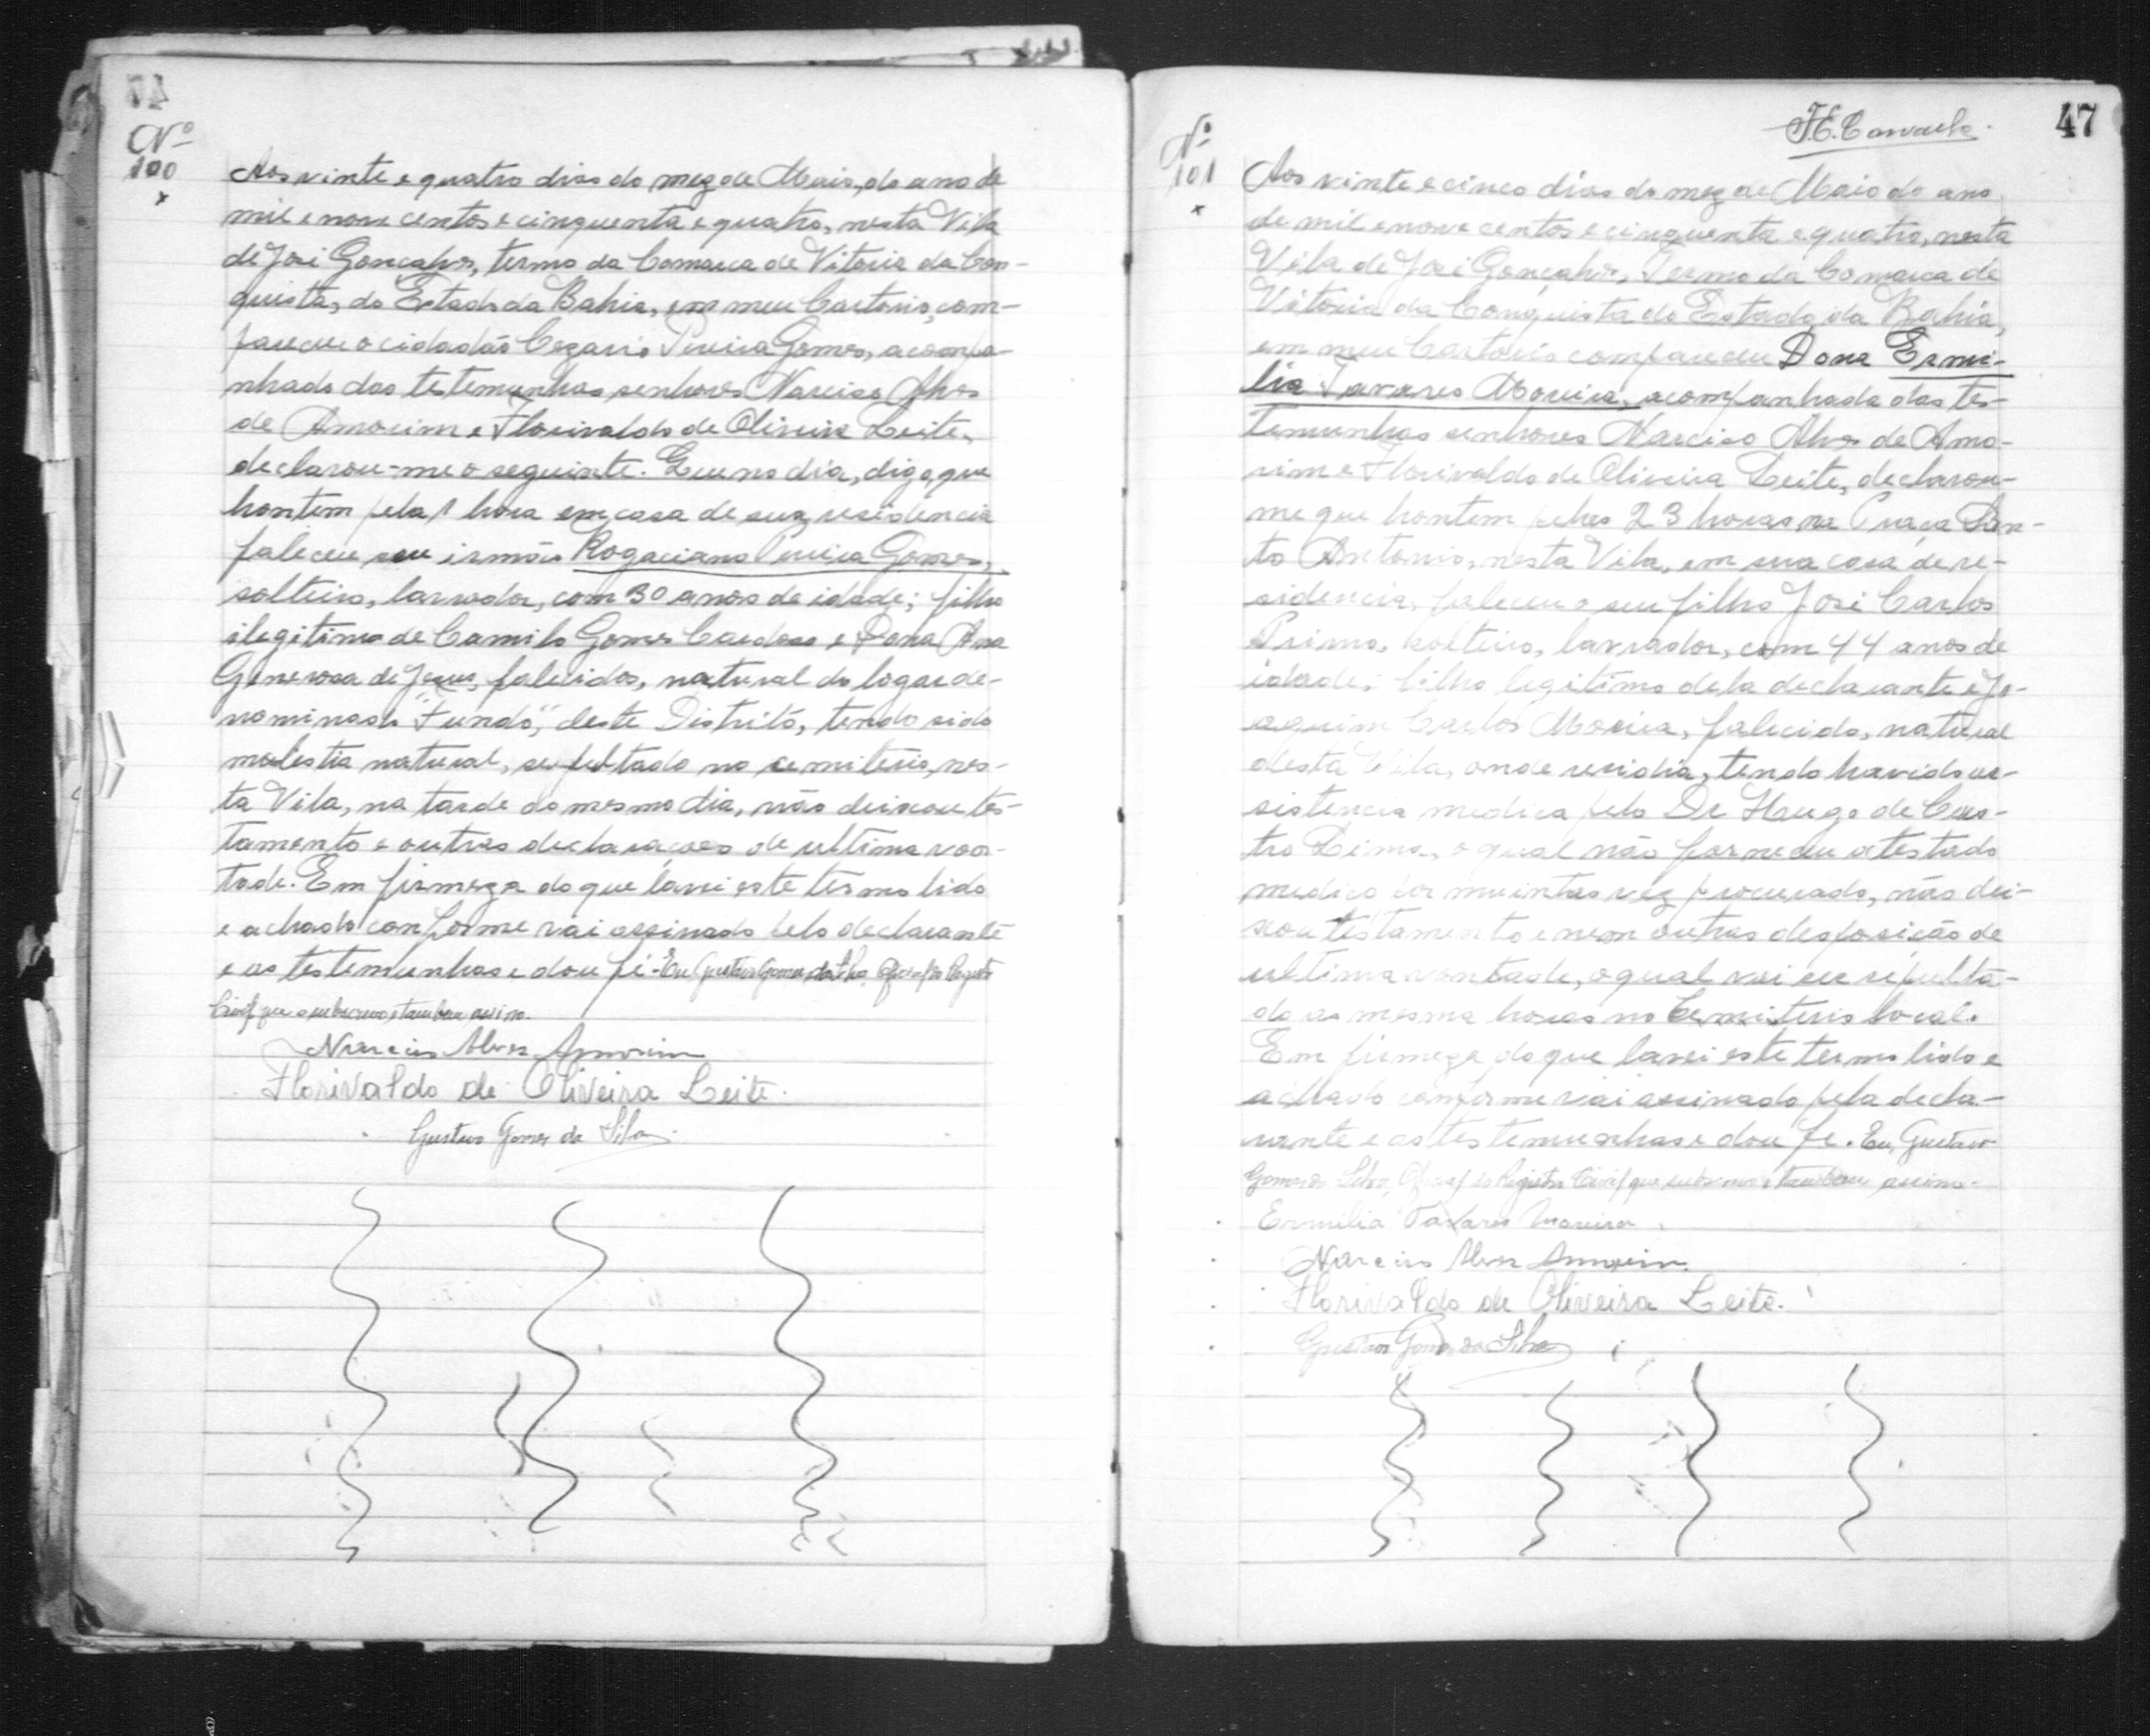 Nº
100
x
Aos vinte e quatro dias do mez de Maio, do ano de
mil e nove centos e cinquenta e quatro, nesta Vila
de José Gonçalves, termo da Comarca de Vitoria da Con-
quista, do Estado da Bahia, em meu Cartorio, com-
pareceu o cidadão Cezario Pereira Gomes, acompa-
nhado das testemunhas senhores Narciso Alves
de Amorim e Florivaldo de Oliveira Leite,
declarou-me o seguinte. Que no dia, digo, que
hontem pela 1 hora em casa de sua residencia
faleceu seu irmão Rogaciano Pereira Gomes,
solteiro, lavrador, com 30 anos de idade; filho
ilegitimo de Camilo Gomes Cardoso e Dona Ana
Generosa de Jesus, falecidos, natural do logar de-
nominado "Fundo", deste Distrito, tendo sido
molestia natural, sepultado no cemiterio, nes-
ta Vila, na tarde do mesmo dia, não deixou tes-
tamento e outras declarações de ultima von-
tade. Em firmeza do que lavrei este termo lido
e achado conforme vai assinado pelo declarante
e as testemunhas e dou fé. Eu, Gustavo Gomes da Silva, Oficial do Registro
Civil que o subscrevo e tambem assino.
Narciso Alves Amorim
Florivaldo de Oliveira Leite.
Gustavo Gomes da Silva
47
Nº
101
x
Aos vinte e cinco dias do mez de Maio do ano
de mil e nove centos e cinquenta e quatro, nesta
Vila de José Gonçalves, Termo da Comarca de
Vitoria da Conquista do Estado da Bahia,
em meu Cartorio compareceu Dona Ermi-
lia Tavares Moreira, acompanhada das tes-
temunhas senhores Narciso Alves de Amo-
rim e Florivaldo de Oliveira Leite, declarou-
me que hontem pelas 23 horas na Praça San-
to Antonio, nesta Vila, em sua casa de re-
sidencia, faleceu o seu filho José Carlos
Primo, solteiro, lavrador, com 44 anos de
idade; filho legitimo dela declarante e Jo-
aquim Carlos Moreira, falecido, natural
desta Vila, onde residia, tendo havido as-
sistencia medica pelo Dr Hugo de Cas-
tro Lima, o qual não forneceu atestado
medico por muintas vez procurado, não dei-
xou testamento e nem outras desposição de
ultima vontade, o qual vai ser sepulta-
do as mesma horas no Cemiterio local.
Em firmeza do que lavrei este termo lido e
achado conforme vai assinado pela decla-
rante e as testemunhas e dou fé. Eu, Gustavo
Gomes da Silva, Oficial do Registro Civil que subscrevo e tambem assino.
Ermilia Tavares Moreira
Narciso Alves Amorim.
Florivaldo de Oliveira Leite.
Gustavo Gomes da Silva